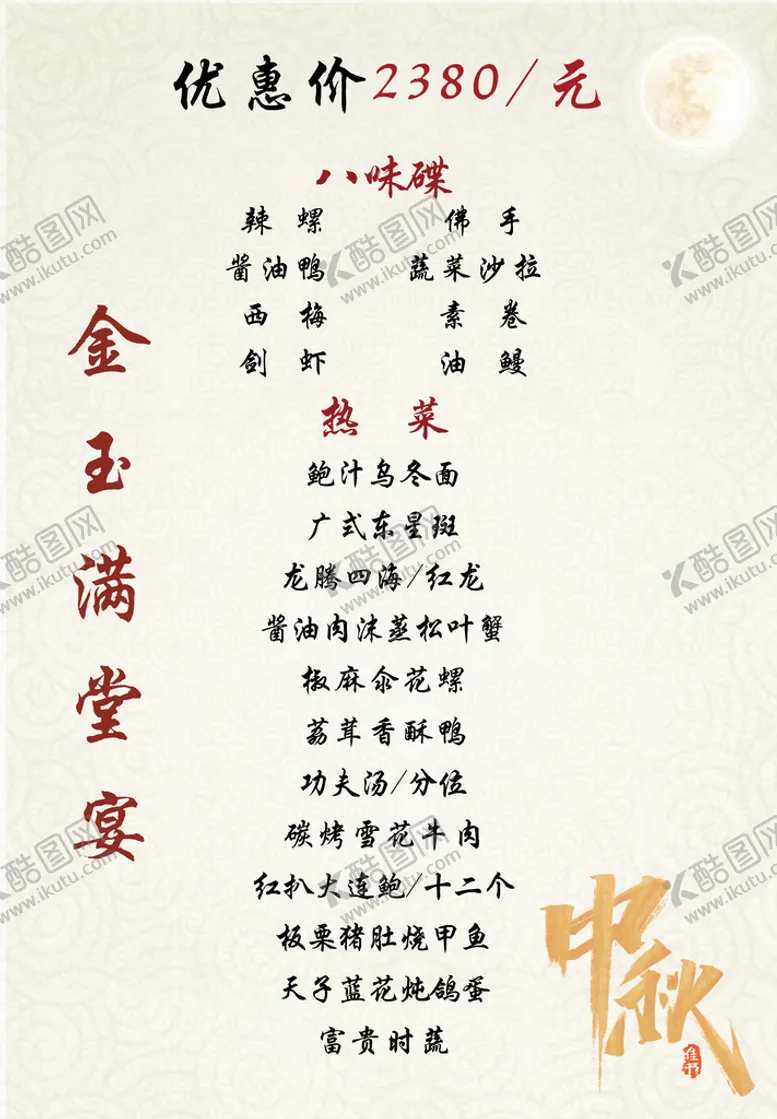 优惠价2380/元
八味碟
辣螺 佛手
酱油鸭 蔬菜沙拉
西梅 素卷
剑虾 油鳗
热菜
鲍汁乌冬面
广式东星斑
龙腾四海/红龙
酱油肉沫蒸松叶蟹
椒麻汆花螺
荔茸香酥鸭
功夫汤/分位
碳烤雪花牛肉
红扒大连鲍/十二个
板栗猪肚烧甲鱼
天子蓝花炖鸽蛋
富贵时蔬
金玉满堂宴
中秋
酷图网
www.ikutu.com